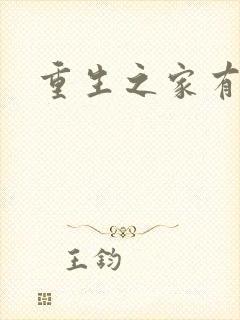 重生之家有
王钧